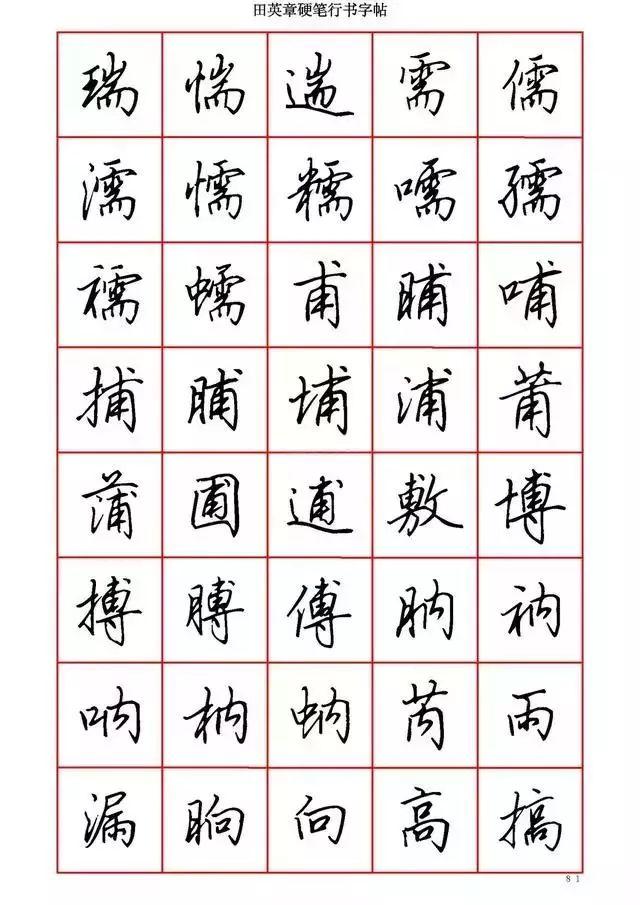 田英章硬笔行书字帖
瑞 惴 遄 需 儒
濡 懦 糯 嚅 孺
襦 蠕 甫 晡 哺
捕 脯 埔 浦 莆
蒲 圃 逋 敷 博
搏 膊 傅 肭 衲
呐 枘 蚋 芮 雨
漏 晌 向 高 搞
81